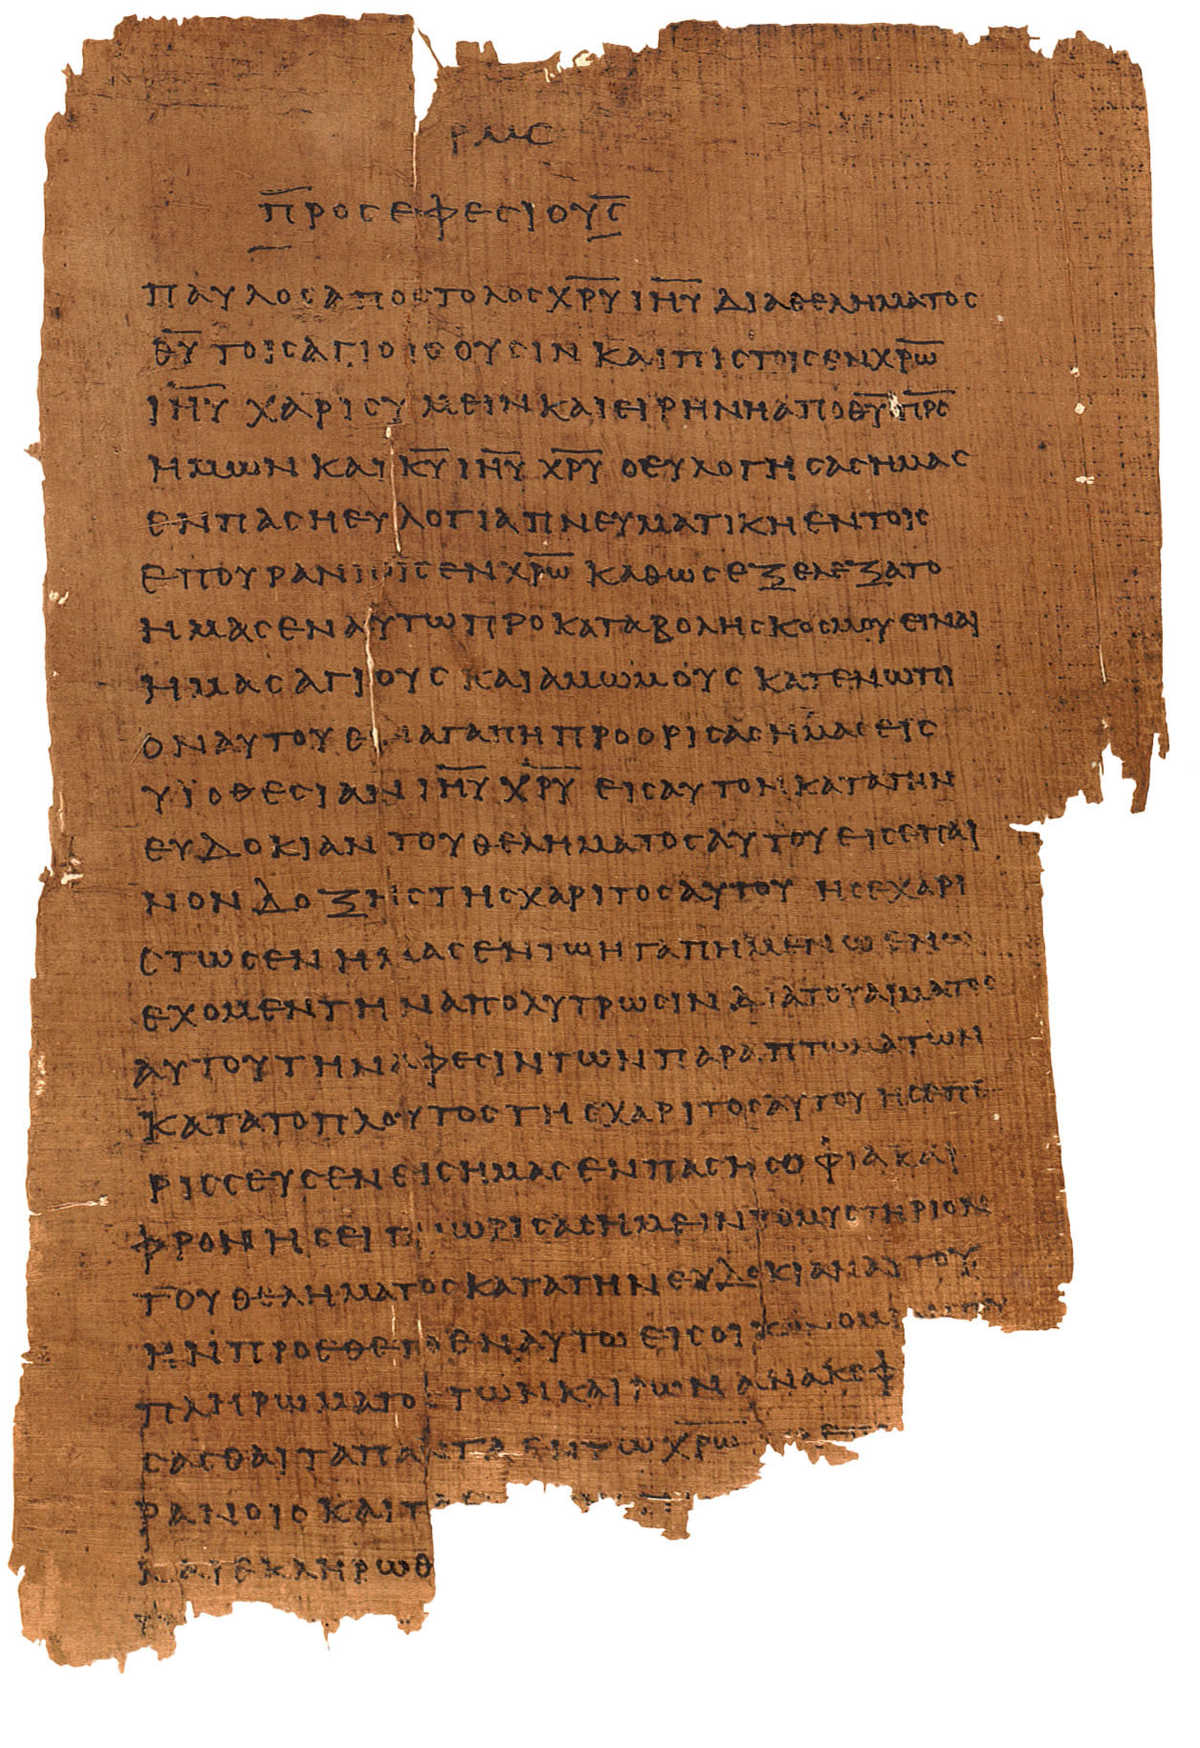 ΡΜϹ
Π̅ΡΟϹΕΦΕϹΙΟΥϹ̅
ΠΑΥΛΟϹΑΠΟϹΤΟΛΟϹΧ̅Ρ̅Υ̅ Ι̅Η̅Υ̅ ΔΙΑΘΕΛΗΜΑΤΟϹ
Θ̅Υ̅ ΤΟΙϹΑΓΙΟΙϹΟΥϹΙΝ ΚΑΙΠΙϹΤΟΙϹΕΝΧ̅Ρ̅Ω̅
Ι̅Η̅Υ̅ ΧΑΡΙϹΥΜΕΙΝΚΑΙΕΙΡΗΝΗΑΠΟΘ̅Υ̅ Π̅Ρ̅Ϲ̅
ΗΜΩΝ ΚΑΙ Κ̅Υ̅ Ι̅Η̅Υ̅ Χ̅Ρ̅Υ̅ ΟΕΥΛΟΓΗϹΑϹΗΜΑϹ
ΕΝΠΑϹΗΕΥΛΟΓΙΑΠΝΕΥΜΑΤΙΚΗΕΝΤΟΙϹ
ΕΠΟΥΡΑΝΙΟΙϹΕΝΧ̅Ρ̅Ω̅ ΚΑΘΩϹΕΞΕΛΕΞΑΤΟ
ΗΜΑϹΕΝΑΥΤΩΠΡΟΚΑΤΑΒΟΛΗϹΚΟϹΜΟΥΕΙΝΑΙ
ΗΜΑϹΑΓΙΟΥϹ ΚΑΙΑΜΩΜΟΥϹ ΚΑΤΕΝΩΠΙ
ΟΝΑΥΤΟΥΕΝΑΓΑΠΗΠΡΟΟΡΙϹΑϹΗΜΑϹΕΙϹ
ΥΪΟΘΕϹΙΑΝ Ι̅Η̅Υ̅ Χ̅Ρ̅Υ̅ ΕΙϹΑΥΤΟΝΚΑΤΑΤΗΝ
ΕΥΔΟΚΙΑΝ ΤΟΥΘΕΛΗΜΑΤΟϹΑΥΤΟΥΕΙϹΕΠΑΙ
ΝΟΝΔΟΞΗϹΤΗϹΧΑΡΙΤΟϹΑΥΤΟΥ ΗϹΕΧΑΡΙ
ϹΤΩϹΕΝΗΜΑϹΕΝΤΩΗΓΑΠΗΜΕΝΩΕΝΩ
ΕΧΟΜΕΝΤΗΝΑΠΟΛΥΤΡΩϹΙΝΔΙΑΤΟΥΑΙΜΑΤΟϹ
ΑΥΤΟΥΤΗΝΑΦΕϹΙΝΤΩΝΠΑΡΑΠΤΩΜΑΤΩΝ
ΚΑΤΑΤΟΠΛΟΥΤΟϹΤΗϹΧΑΡΙΤΟϹΑΥΤΟΥΗϹΕΠΕ
ΡΙϹϹΕΥϹΕΝΕΙϹΗΜΑϹΕΝΠΑϹΗϹΟΦΙΑΚΑΙ
ΦΡΟΝΗϹΕΙΓΝΩΡΙϹΑϹΗΜΕΙΝΤΟΜΥϹΤΗΡΙΟΝ
ΤΟΥΘΕΛΗΜΑΤΟϹΚΑΤΑΤΗΝΕΥΔΟΚΙΑΝΑΥΤΟΥ
ΗΝΠΡΟΕΘΕΤΟΕΝΑΥΤΩΕΙϹΟΙΚΟΝΟΜΙΑΝΤΟΥ
ΠΛΗΡΩΜΑΤΟϹΤΩΝΚΑΙΡΩΝΑΝΑΚΕΦ
ϹΑϹΘΑΙΤΑΠΑΝΤΑΕΝΤΩΧ̅Ρ̅Ω̅
ΡΑΝΟΙϹΚΑΙΤ
ΚΑΙΕΚΛΗΡΩΘ